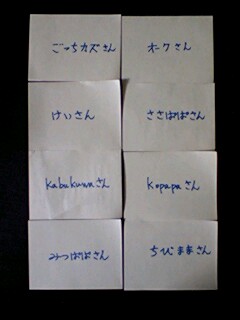 ごっちカズさん
オークさん
けいさん
ささぱぱさん
Kabukunnさん
Kopapaさん
みつぱぱさん
ちびままさん